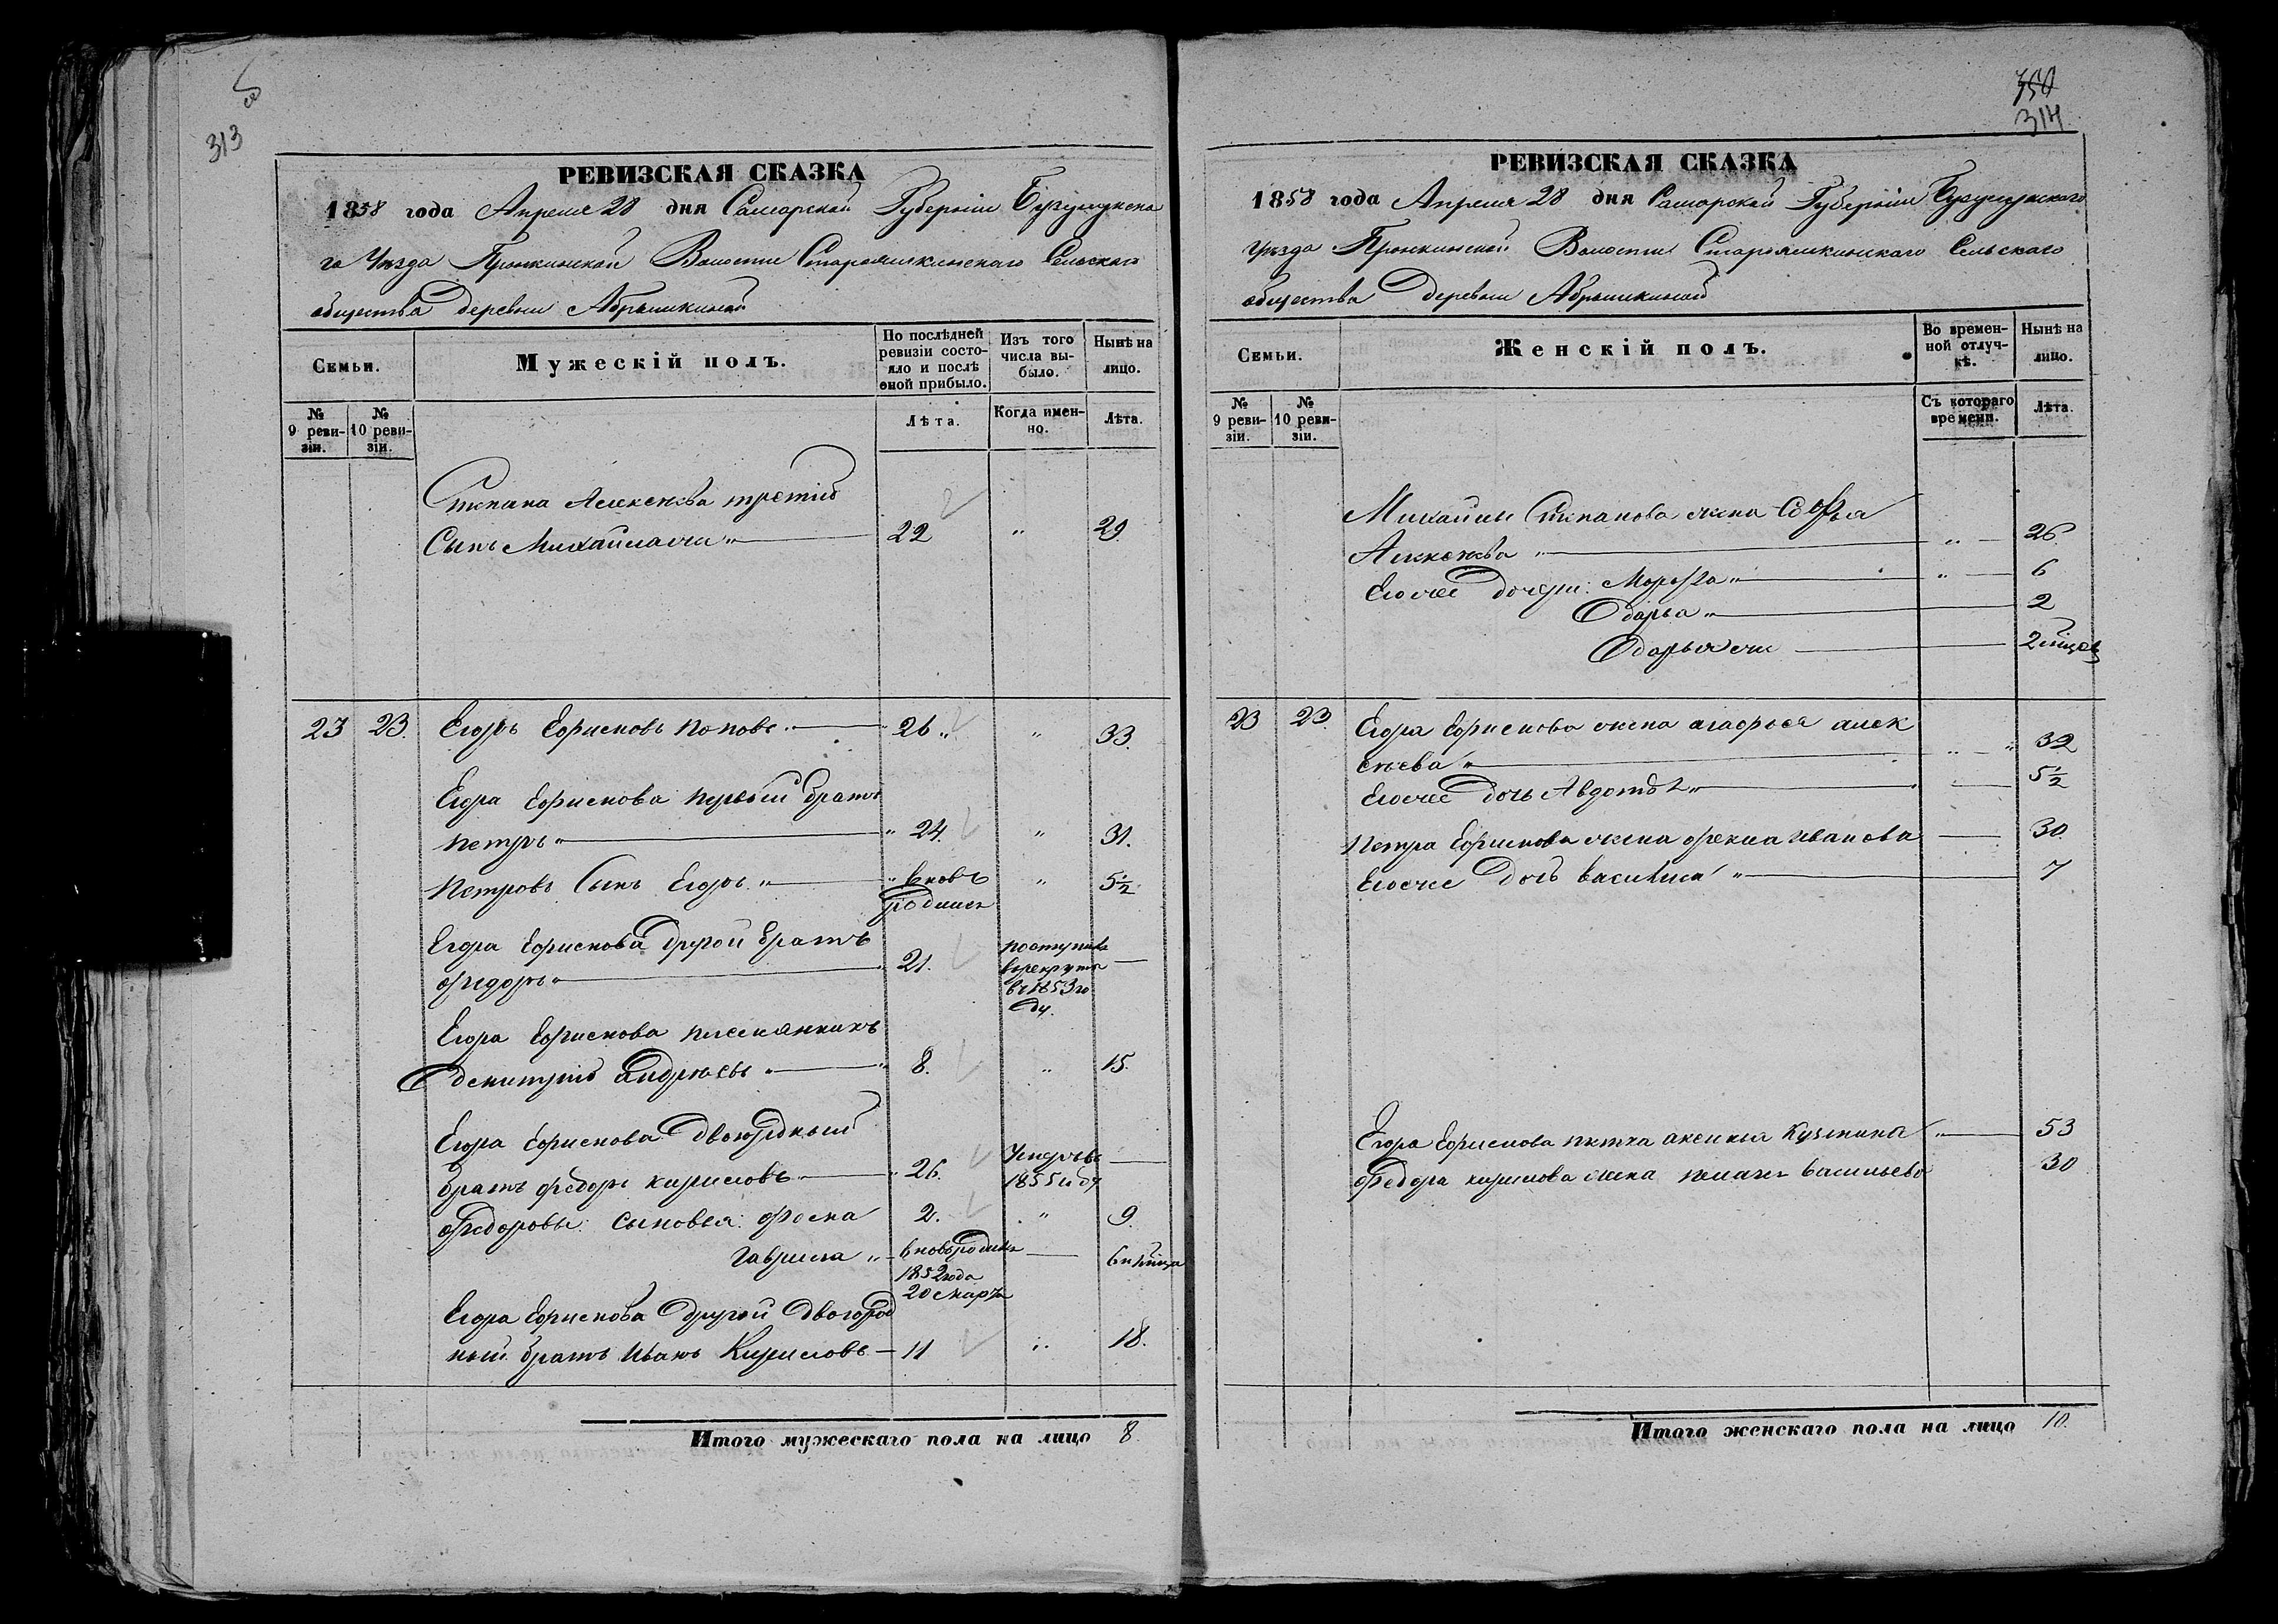 313
РЕВИЗСКАЯ СКАЗКА
1858 года Апреля 28 дня Самарской Губернии Бугурускна
го Уезда Пронкинской Волости Староямкинского Сельского
общества Деревни Абрямкиной
Семьи.
Мужескій полъ.
По послѣдней ревизіи состояло и послѣ оной прибыло.
Изъ того числа выбыло.
Нынѣ на лицо.
№ 9 ревизіи.
№ 10 ревизіи.
Лѣта.
Когда именно.
Лѣта.
Степана Алексеева третий
Сынъ Михайла 22 " 29
23 23. Егоръ Борисновъ Поповъ 26 " 33.
Егора Бориснова первый братъ
Петръ 24. " 31.
Петровъ Сынъ Егоръ вновь родился " 5½
Егора Бориснова Другой братъ
Федоръ 21. поступилъ в рекруты в 1853 году.
Егора Бориснова племянникъ
Демитрий Андреевъ 8. " 15.
Егора Бориснова Двоюродный
братъ Федоръ Кириловъ 26. Умеръ в 1855 году
Федоровы Сыновья: Фока 2. " 9.
Гаврила вновь родился 1852 года 20 марта
Егора Бориснова другой Двоюрод
ный братъ Иванъ Кириловъ 11 " 18.
Итого мужескаго пола на лицо 8.
350
314
РЕВИЗСКАЯ СКАЗКА
1858 года Апреля 28 дня Самарской Губернии
Уезда Пронкинской Волости Староямкинского Сельского
общества Деревни Абрямкиной
Семьи.
Женскій полъ.
Во временной отлучкѣ.
Нынѣ на лицо.
№ 9 ревизіи.
№ 10 ревизіи.
Съ котораго времени.
Лѣта.
Михайлы Степанова жена Софья
Алексеева " 26.
Его же дочери: Марфа " 6
Дарья 2
Дарья же 2
23 23. Егора Бориснова жена Агафья Алек
сеева " 32
Его же дочь Авдотья 5½
Петра Бориснова жена Фекла Иванова 30.
Его же дочь Василиса 7
Егора Бориснова тетка Аксинья Кузмина 53
Федора Кирилова жена Васильева 30
Итого женскаго пола на лицо 10.